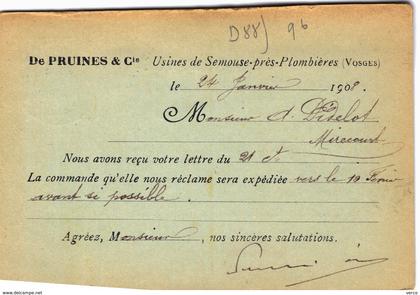 D88) 96
De PRUINES & Cie Usines de Semouse-près-Plombières (VOSGES)
le 24 Janvier 1908.
Monsieur A. Didelot
Mirecourt
Nous avons reçu votre lettre du 21 ct.
La commande qu'elle nous réclame sera expédiée vers le 10 Février
avant si possible.
Agréez, Monsieur, nos sincères salutations.